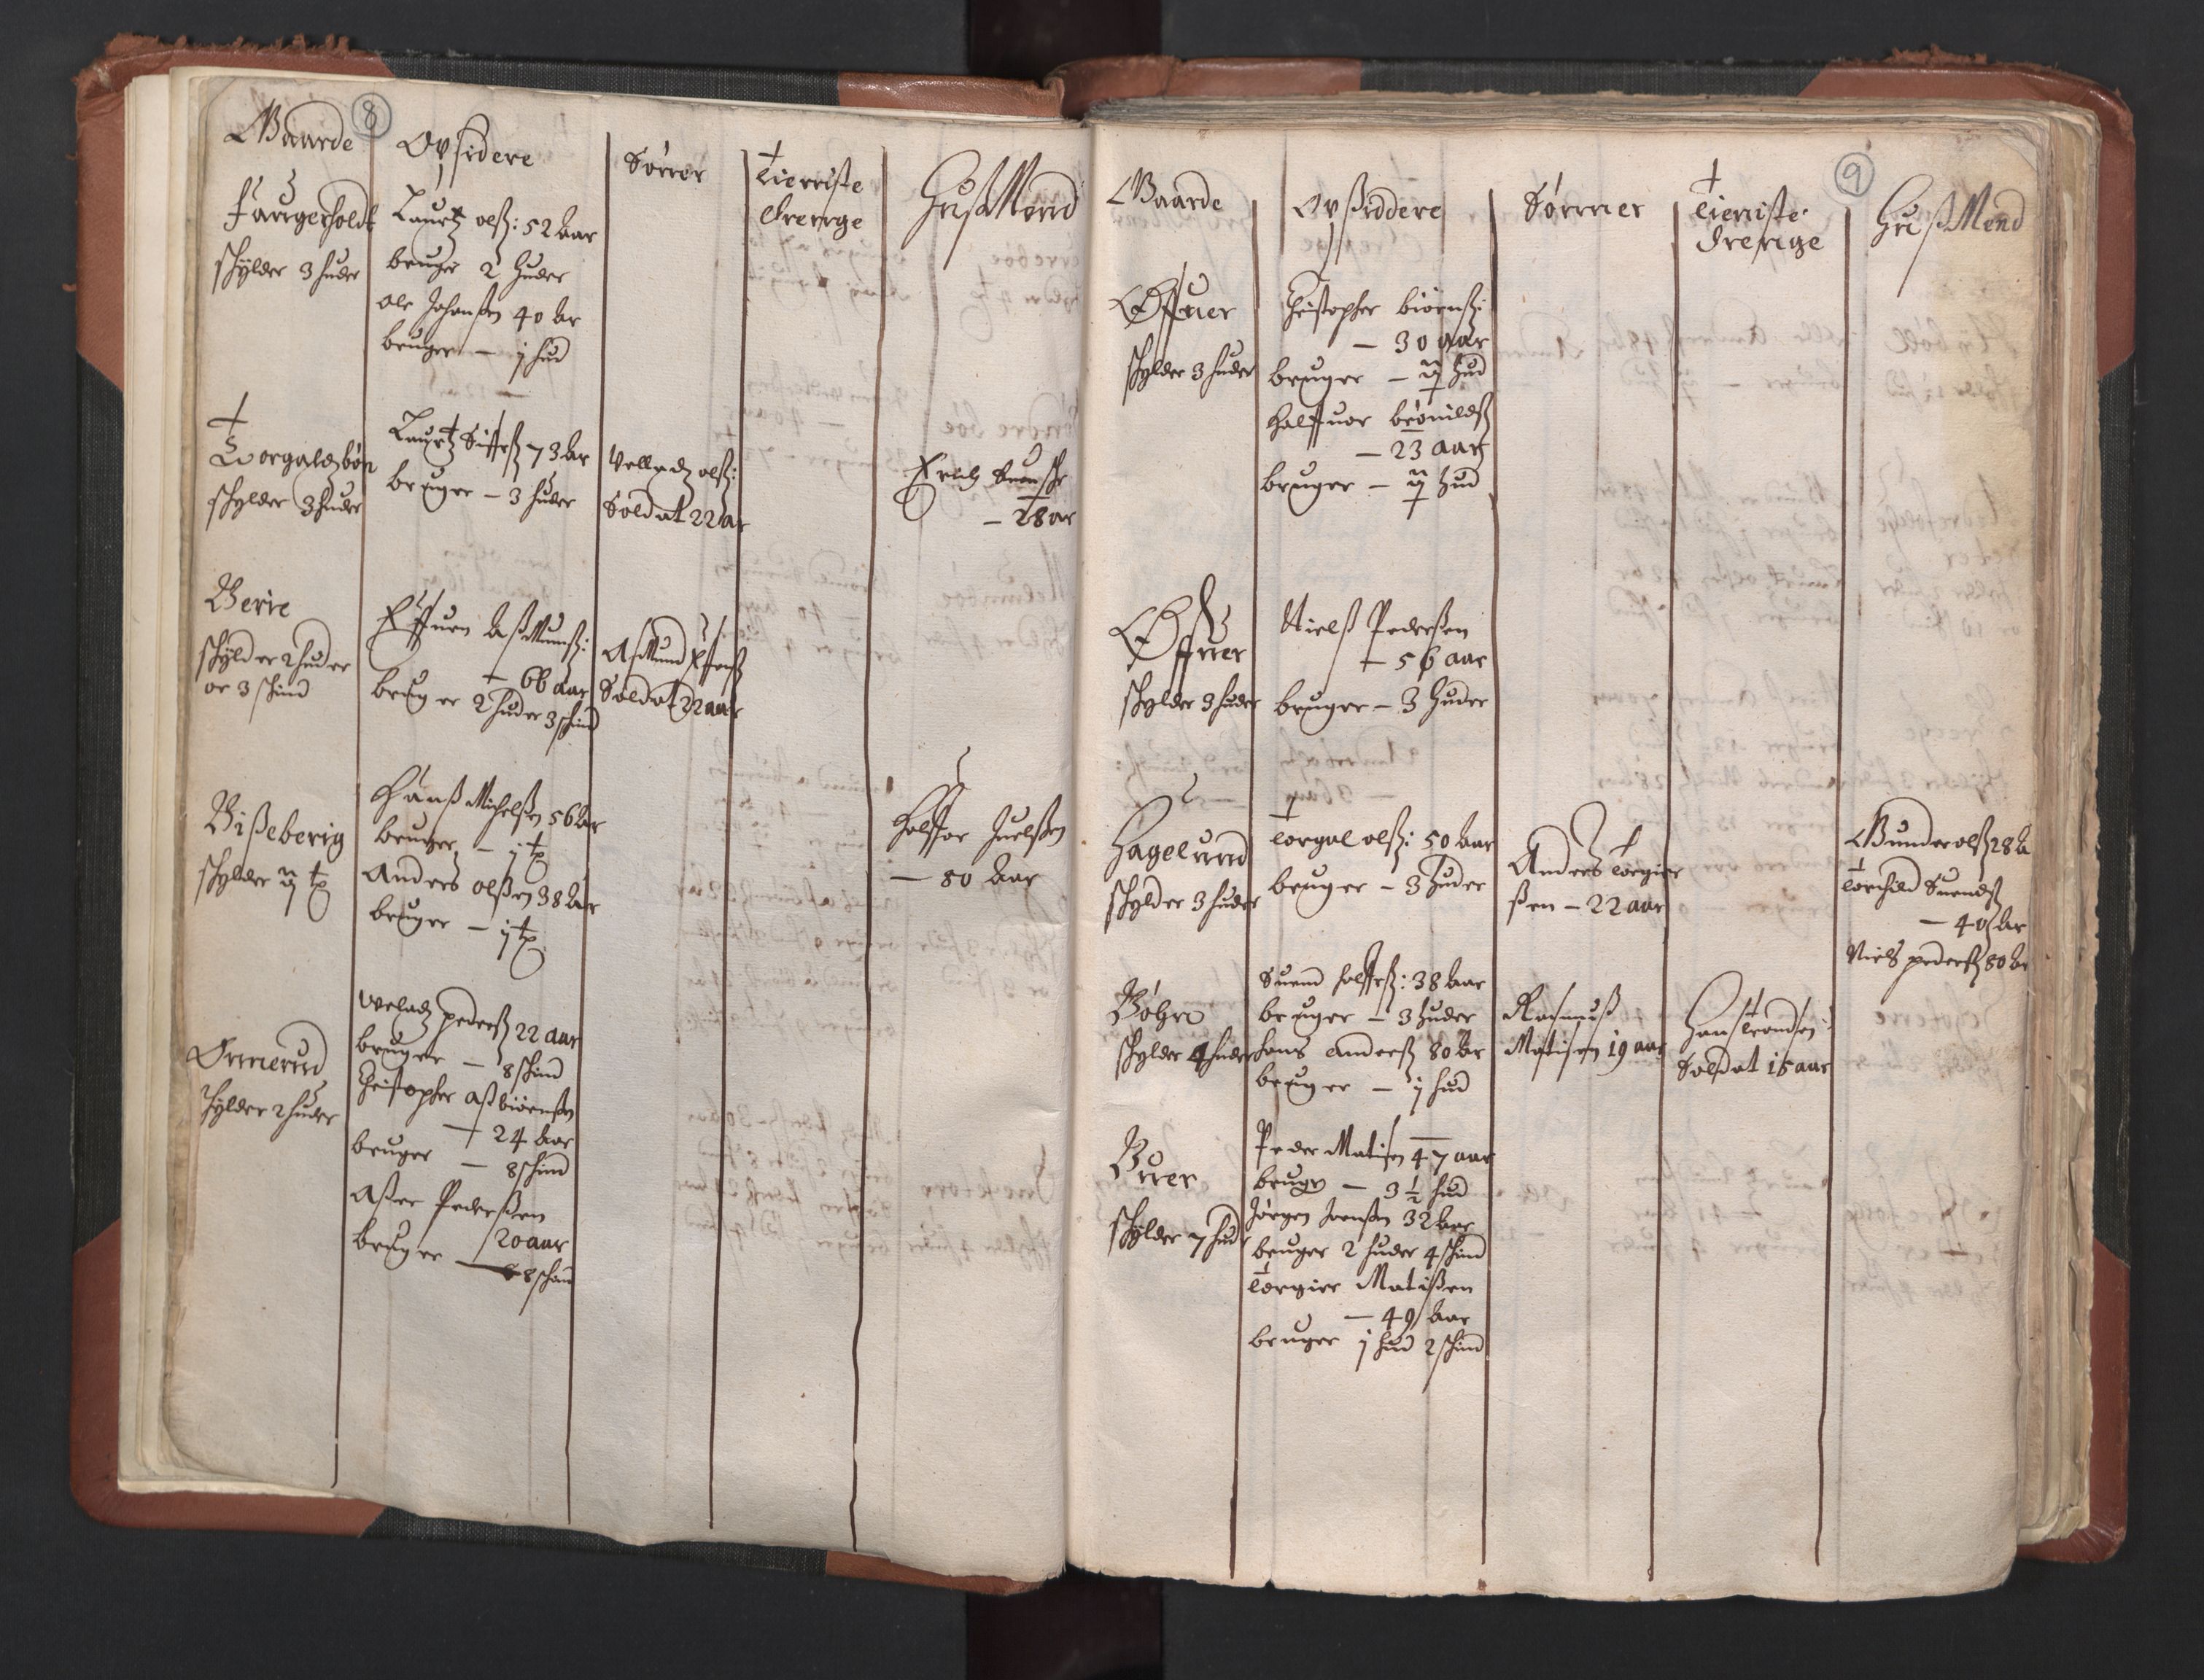 8
Gaarde
Opsidere
Sønner
Tienniste
drennge
Huß Mend
Fanngerholdt
schÿlder 3 huder
Laurtz olß: 52 aar
bruger 2 huder
ole Johanßen 40 ar
bruger — j hud
Torgalsbøn
schylder 3 huder
Laurtz Siffrß 73 ar
bruger — 3 huder
Vellads olß:
Soldat 22 ar
Erich
— 28 ar
Berie
schylder 2 huder
oc 3 schind
Effuen Aßmunß:
— 66 aar
bruger 2 huder 3 schind
Asmund Effenß
Soldat 22 aar
Bißeberig
schylder ij tp
Hanß Michelßen 56 ar
bruger — j tp
Anders olßen 38 ar
bruger — j tp
Halffor Juelßen
— 80 aar
Ormerud
schylder 2 huder
Velads pederß 22 aar
bruger — 8 schind
Christopher aßbiørnßen
— 24 aar
bruger — 8 schind
Aßer Pederßen
20 aar
bruger — 8 schind
9
Gaarde
Opßiddere
Sønner
Tienniste
drennge
Huß Mend
Øffuer
schylder 3 huder
Christopher biørnß:
— 30 aar
bruger — ij hud
Halffuor brønildß
— 23 aar
bruger — ij hud
Øffuer
schylder 3 huder
Nielß Pederßen
— 56 aar
bruger — 3 huder
Hagelund
schylder 3 huder
Torgal olß: 50 aar
bruger — 3 huder
Anders Torgier
ßen — 22 aar
Gunder olß 28 a
Torchild Suendß
— 40 ar
Niels pederß 80 ar
Bøhre
schylder 4 huder
Suend halffrß: 38 aar
bruger — 3 huder
hans anderß 80 ar
bruger — j hud
Rasmuß
Matisen 19 aar
Hans Trondsen
Soldat 18 aar
Burer
schylder 7 hud
Peder Matisen 47 aar
bruger — 3 ½ hud
Jørgen Joenßen 32 aar
bruger 2 huder 4 schind
Torgier Matißen
— 49 aar
bruger j hud 2 schind